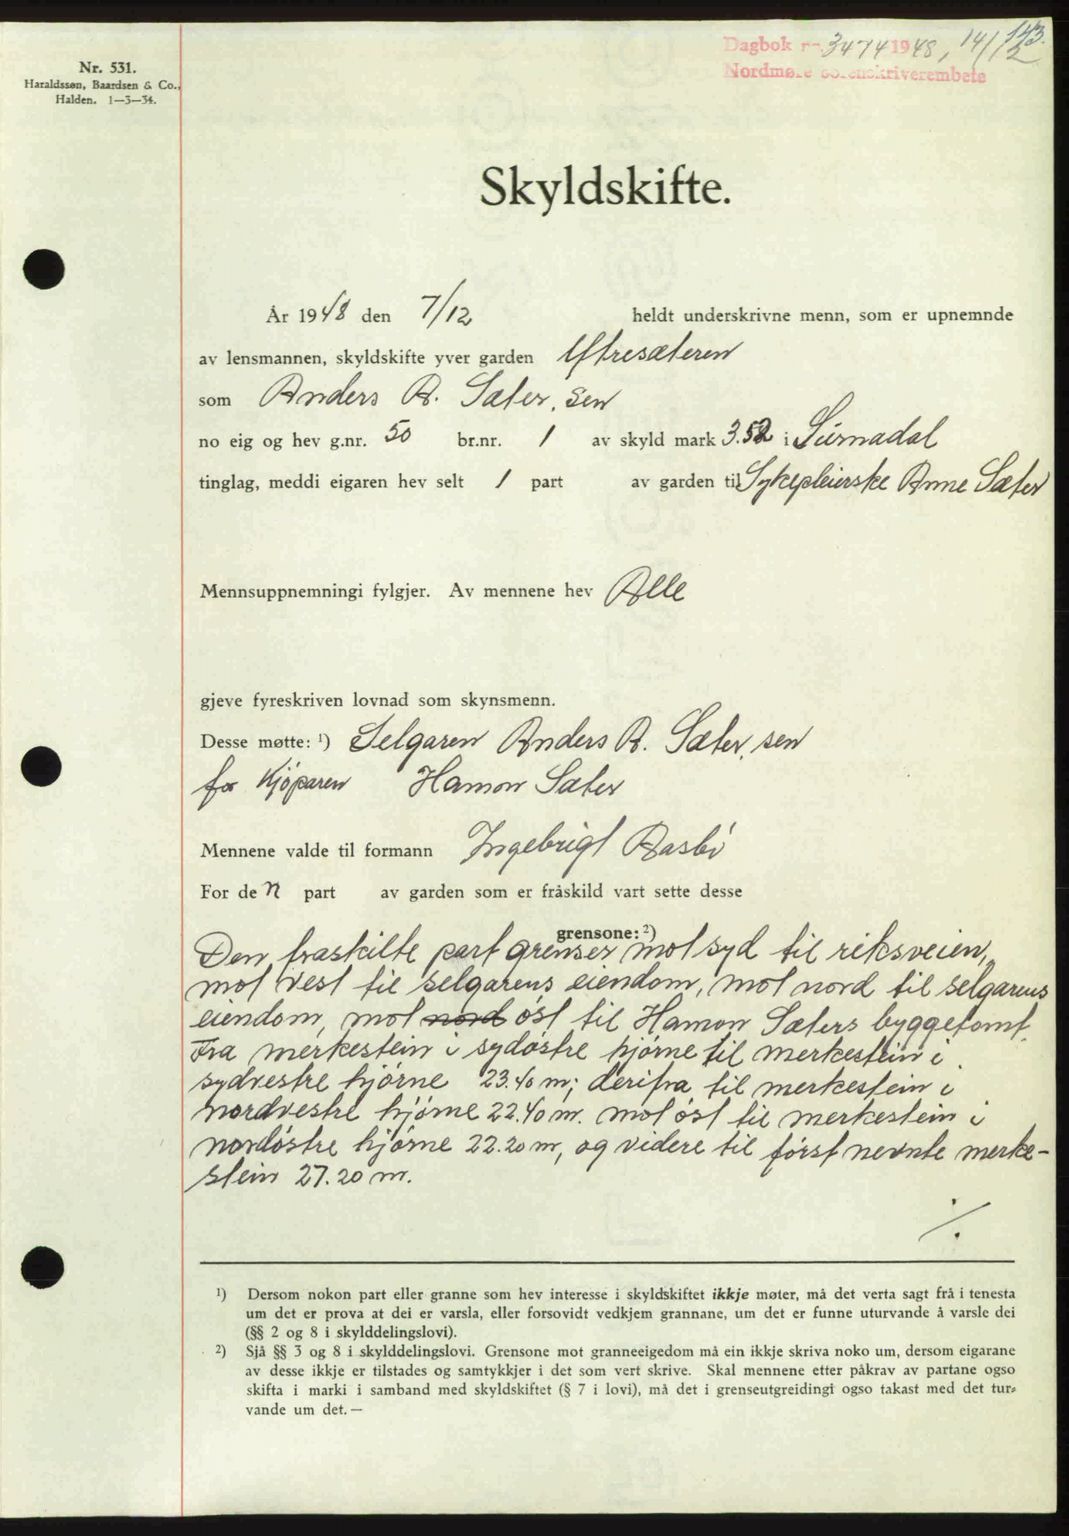 143.
Dagbok nr. 3474 1948, 14/12
Nordmøre sorenskriverembete
Nr. 531.
Haraldssøn, Baardsen & Co.,
Halden. 1—3—34.
Skyldskifte.
År 1948 den 7/12 heldt underskrivne menn, som er upnemnde
av lensmannen, skyldskifte yver garden Ytresæteren
som Anders A. Sæter, sen
no eig og hev g.nr. 50 br.nr. 1 av skyld mark 3.52 i Surnadal
tinglag, meddi eigaren hev selt 1 part av garden til Sykepleierske Anne Sæter
Mennsuppnemningi fylgjer. Av mennene hev Alle
gjeve fyreskriven lovnad som skynsmenn.
Desse møtte: ¹) Selgaren Anders A. Sæter, sen
for kjöparen Hamon Sæter
Mennene valde til formann Ingebrigt Aasbö
For de n part av garden som er fråskild vart sette desse
grensone: ²)
Den fraskilte part grenser mot syd til riksveien,
mot vest til selgarens eiendom, mot nord til selgarens
eiendom, mot nord öst til Hamon Sæters byggetomt.
Fra merkestein i sydöstre hjörne til merkestein i
sydvestre hjörne 23.40 m; derifra til merkestein i
nordvestre hjörne 22.40 m. mot öst til merkestein i
nordöstre hjörne 22.20 m, og videre til först nevnte merke-
stein 27.20 m.
./.
¹) Dersom nokon part eller granne som hev interesse i skyldskiftet ikkje møter, må det verta sagt frå i tenesta
um det er prova at dei er varsla, eller forsovidt vedkjem grannane, um det er funne uturvande å varsle dei
(§§ 2 og 8 i skylddelingslovi).
²) Sjå §§ 3 og 8 i skylddelingslovi. Grensone mot granneeigedom må ein ikkje skriva noko um, dersom eigarane
av desse ikkje er tilstades og samtykkjer i det som vert skrive. Skal mennene etter påkrav av partane ogso
skifta i marki i samband med skyldskiftet (§ 7 i lovi), må det i grenseutgreidingi ogso takast med det tur-
vande um det.—